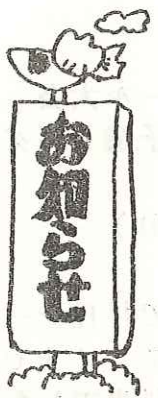 お知らせ